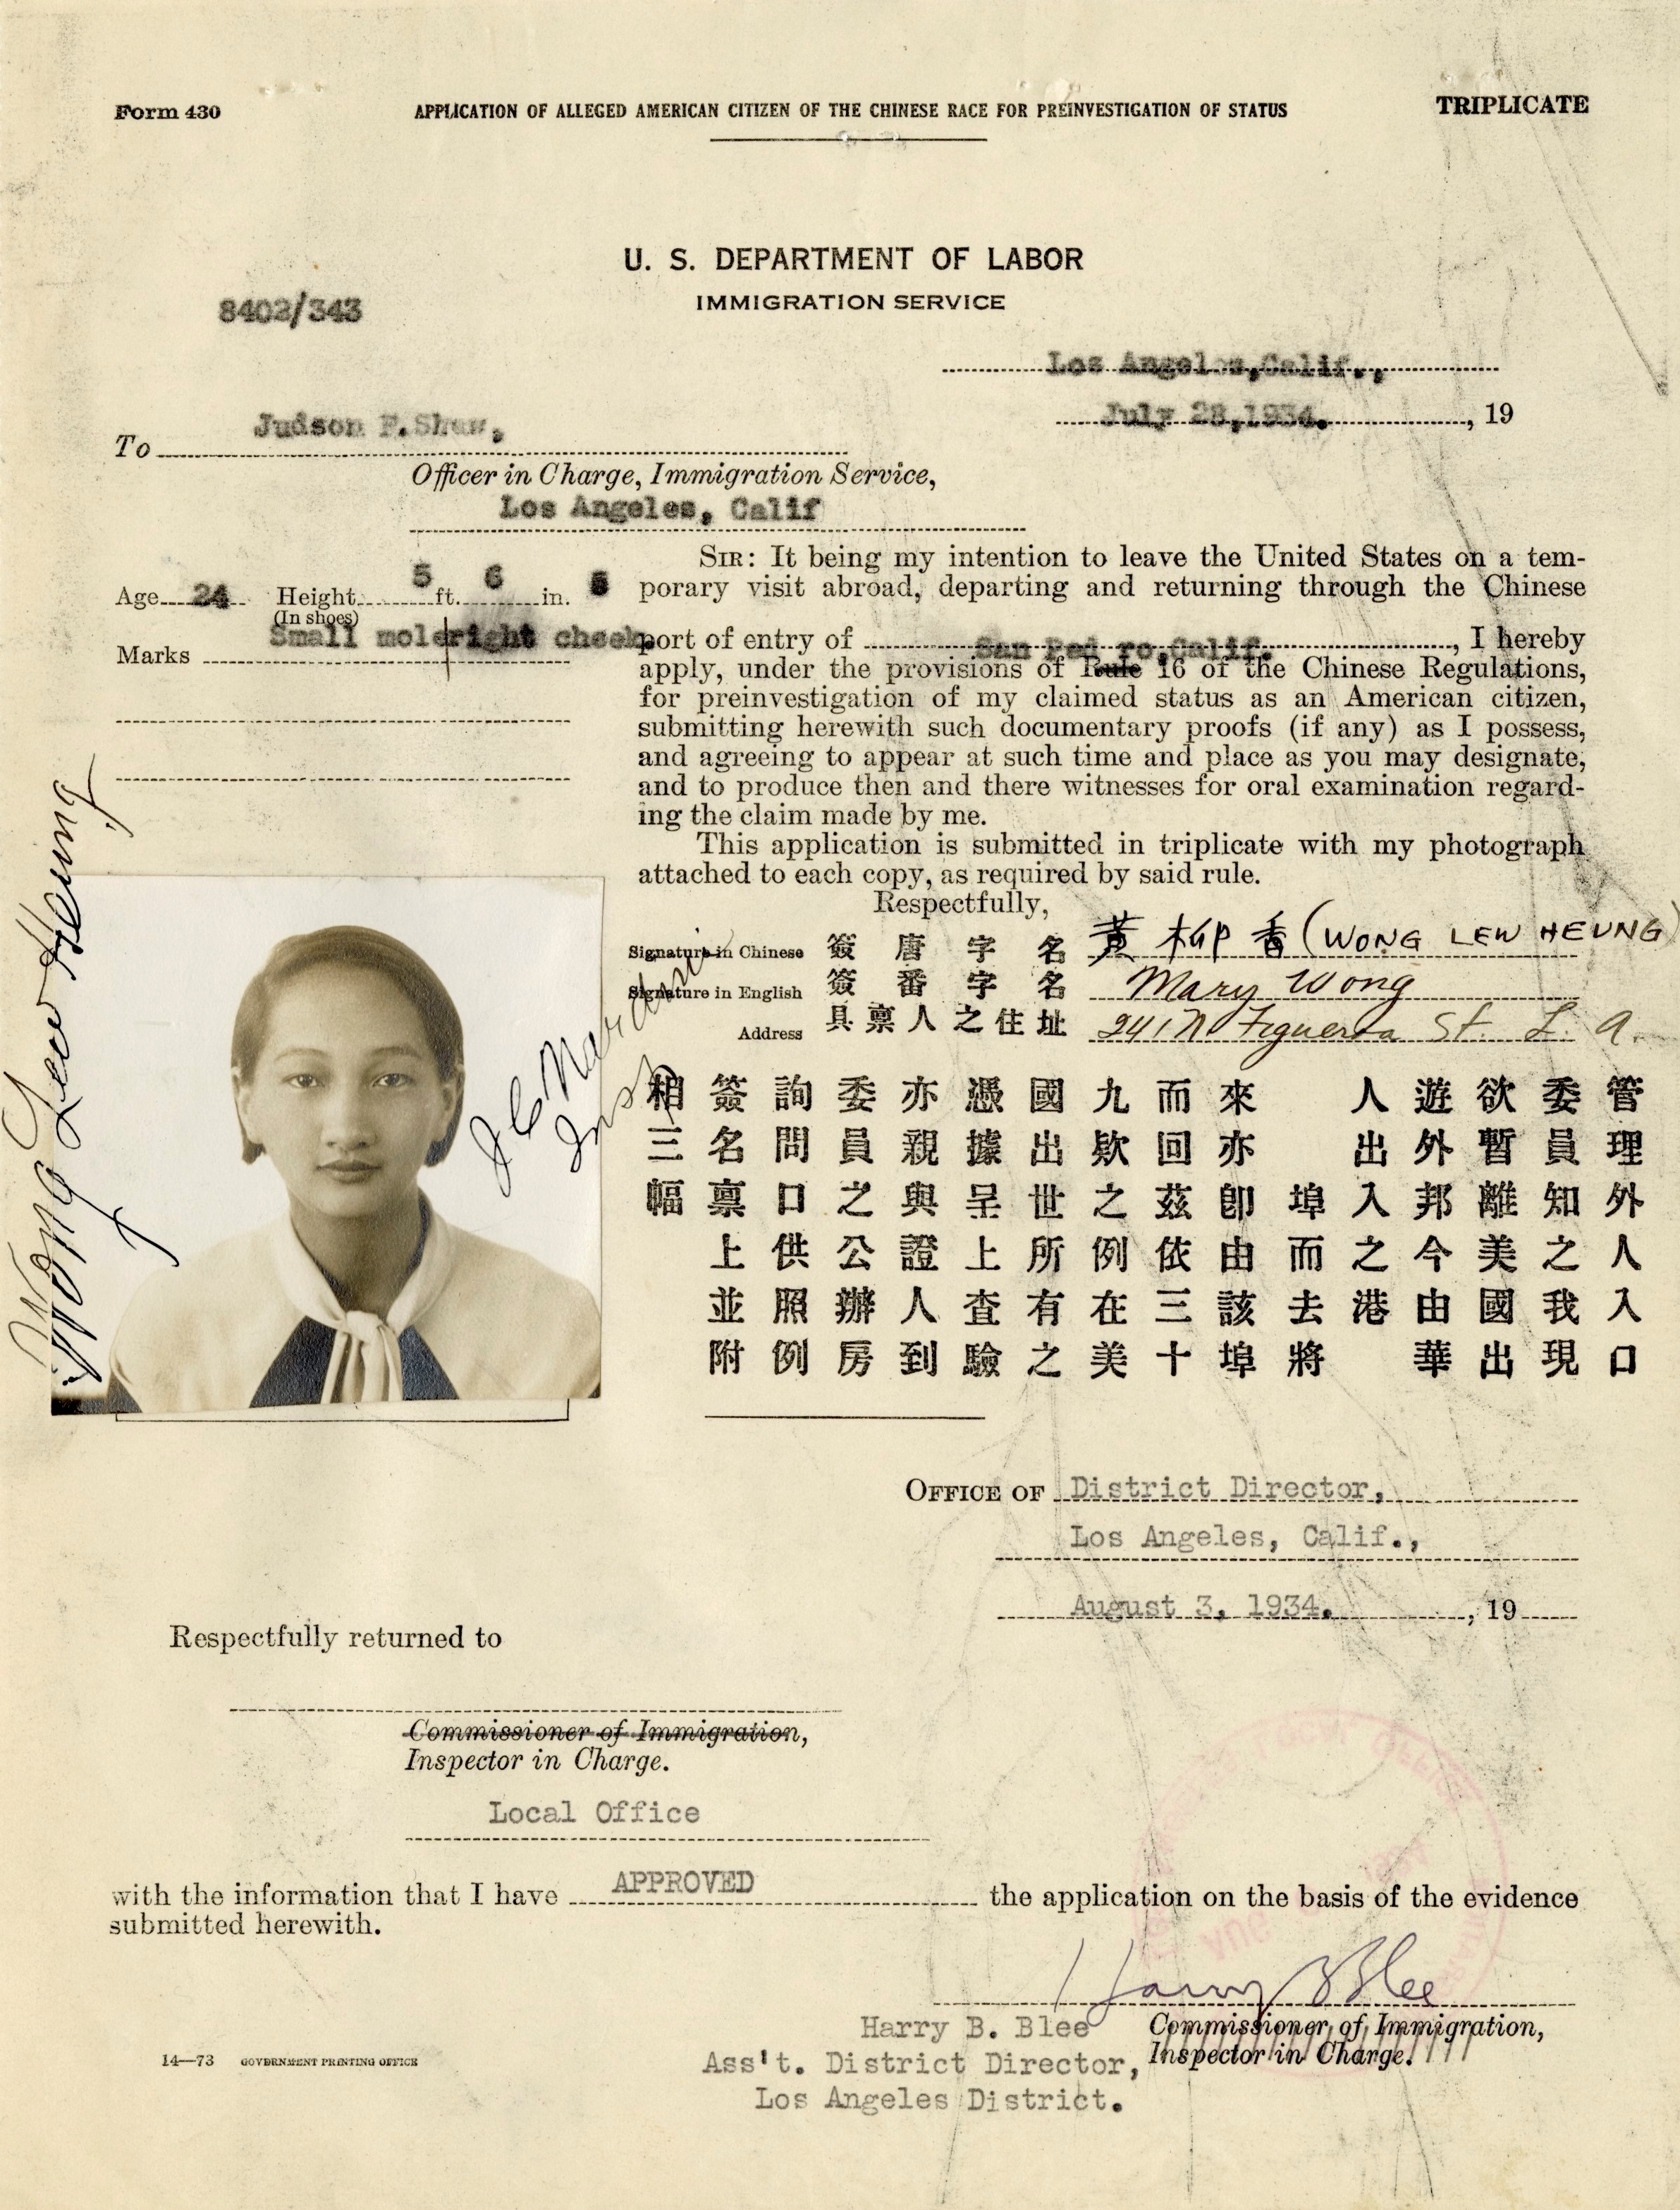 Form 430
APPLICATION OF ALLEGED AMERICAN CITIZEN OF THE CHINESE RACE FOR PREINVESTIGATION OF STATUS
TRIPLICATE
U. S. DEPARTMENT OF LABOR
IMMIGRATION SERVICE
8402/343
Los Angeles,Calif.,
July 28,1934. , 19
To Judson F.Shaw,
Officer in Charge, Immigration Service,
Los Angeles, Calif
Age 24 Height 5 ft. 6 in.
(In shoes)
Marks Small mole right cheek
SIR: It being my intention to leave the United States on a tem-
porary visit abroad, departing and returning through the Chinese
port of entry of San Ped ro,Calif. , I hereby
apply, under the provisions of Rule 16 of the Chinese Regulations,
for preinvestigation of my claimed status as an American citizen,
submitting herewith such documentary proofs (if any) as I possess,
and agreeing to appear at such time and place as you may designate,
and to produce then and there witnesses for oral examination regard-
ing the claim made by me.
This application is submitted in triplicate with my photograph
attached to each copy, as required by said rule.
Respectfully,
Signature in Chinese 簽唐字名 黃柳香 (WONG LEW HEUNG)
Signature in English 簽番字名 Mary Wong
Address 具禀人之住址 241 N Figueroa St. L. A.
Wong Lew Heung
管理外人入口
委員知之我現
欲暫離美國出
遊外邦今由華
人出入之港
埠而去將
來亦卽由該埠
而回茲依三十
九欵之例在美
國出世所有之
憑據呈上查驗
亦親與證人到
委員之公辦房
詢問口供照例
簽名禀上並附
相三幅
OFFICE OF District Director,
Los Angeles, Calif.,
August 3, 1934. , 19
Respectfully returned to
Commissioner of Immigration,
Inspector in Charge.
Local Office
with the information that I have APPROVED the application on the basis of the evidence
submitted herewith.
Harry B Blee
Harry B. Blee
Commissioner of Immigration,
Ass't. District Director,
Inspector in Charge.
Los Angeles District.
14—73 GOVERNMENT PRINTING OFFICE